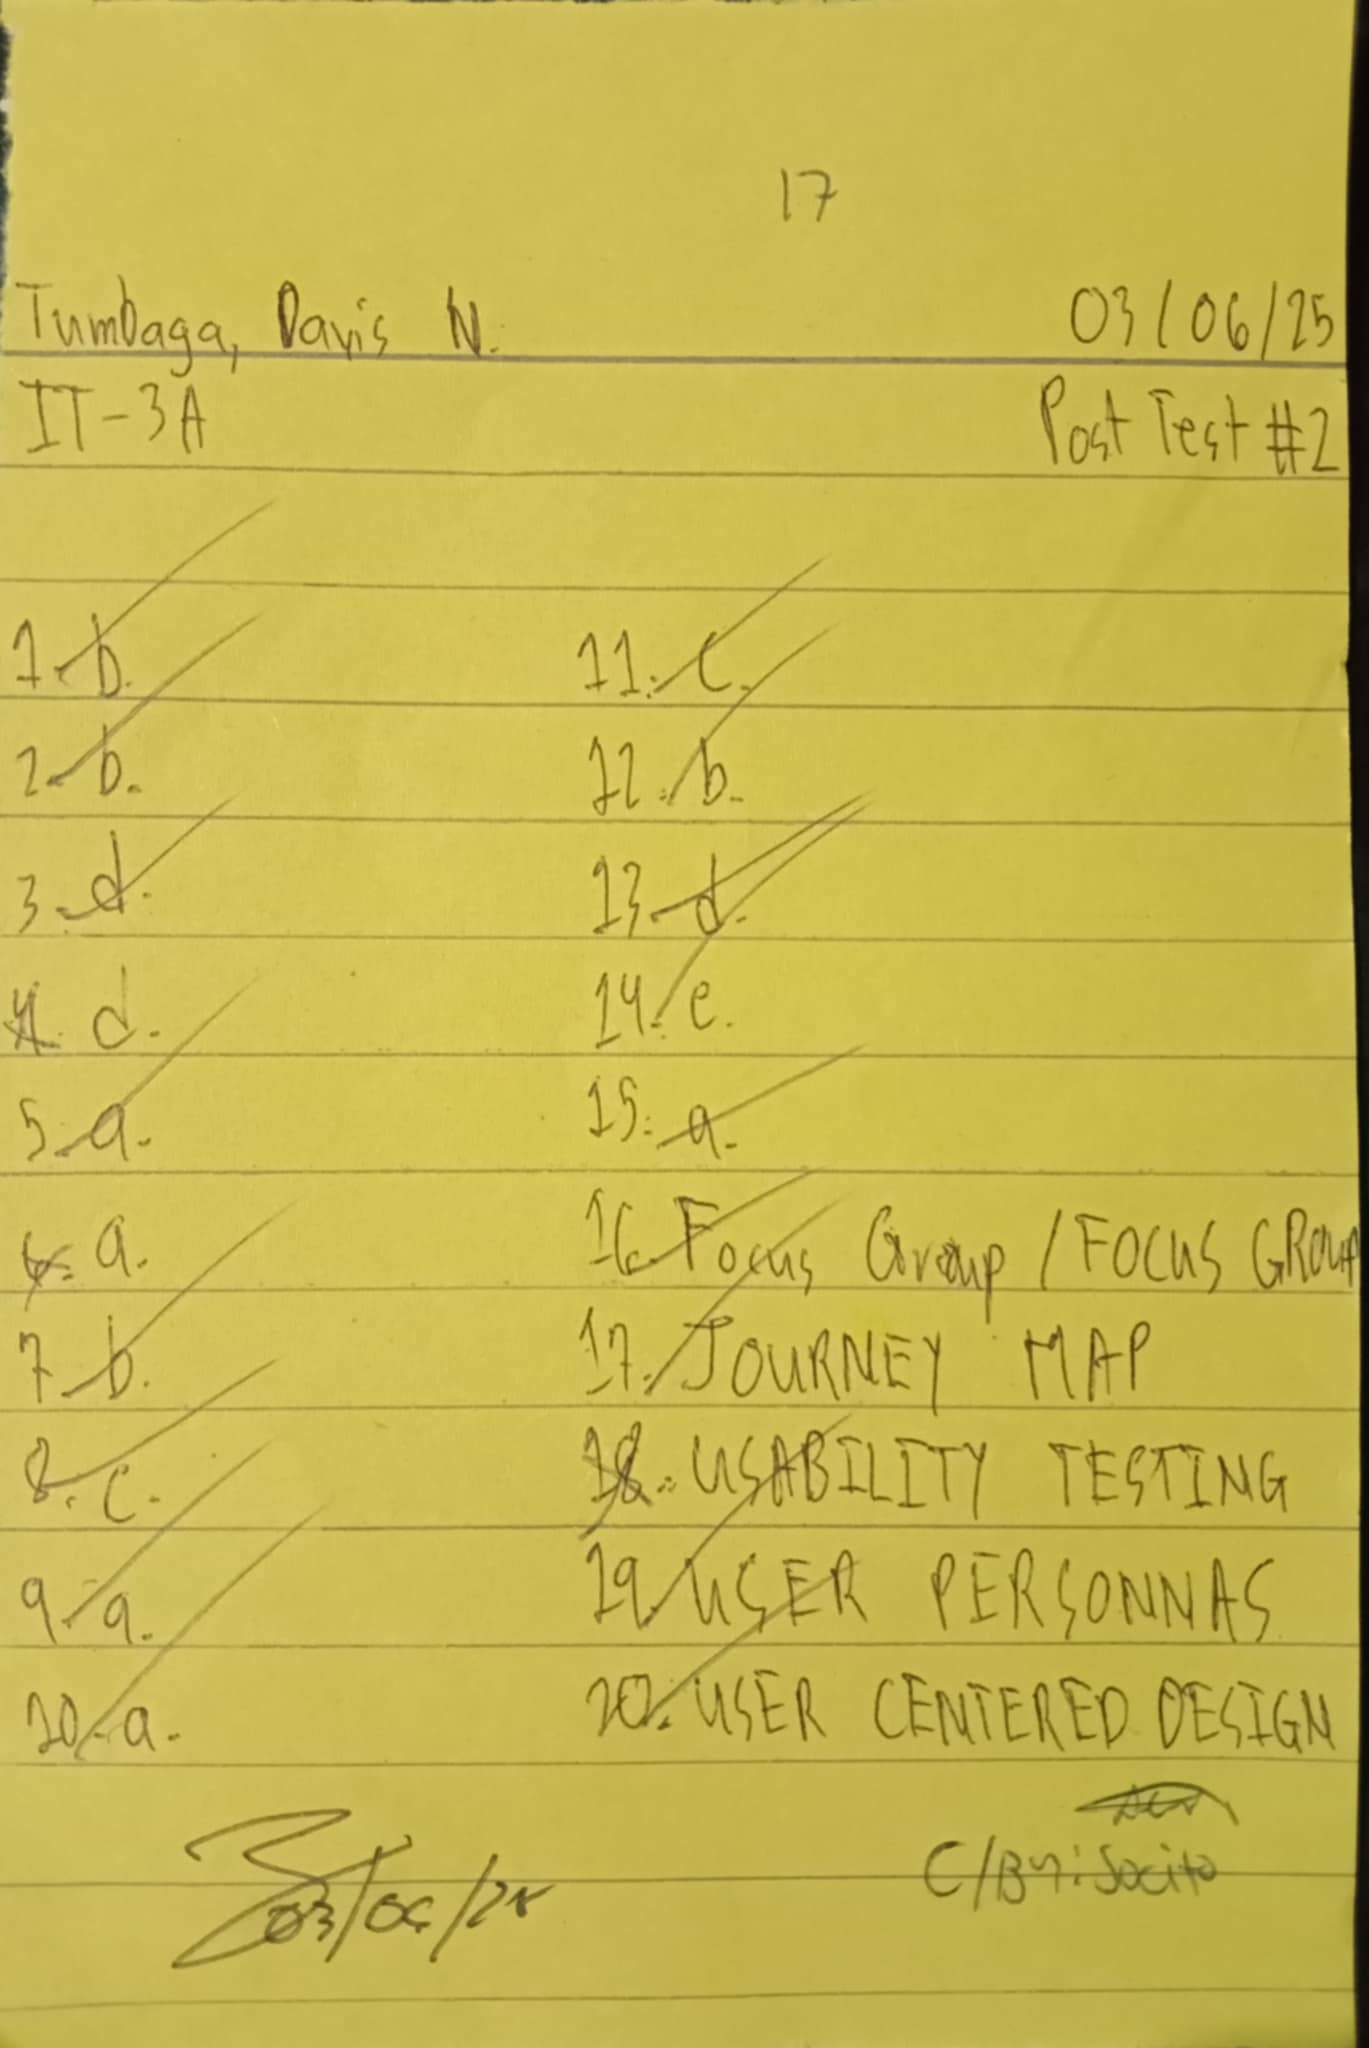 17
Tumbaga, Davis N. 03/06/25
IT-3A Post Test #2
1. b.
2. b.
3. d.
4. d.
5. a.
6. a.
7. b.
8. c.
9. a.
10. a.
11. c.
12. b.
13. d.
14. e.
15. a.
16. Focus Group / FOCUS GROUP
17. JOURNEY MAP
18. USABILITY TESTING
19. USER PERSONNAS
20. USER CENTERED DESIGN
03/06/25
C/BY: Socito